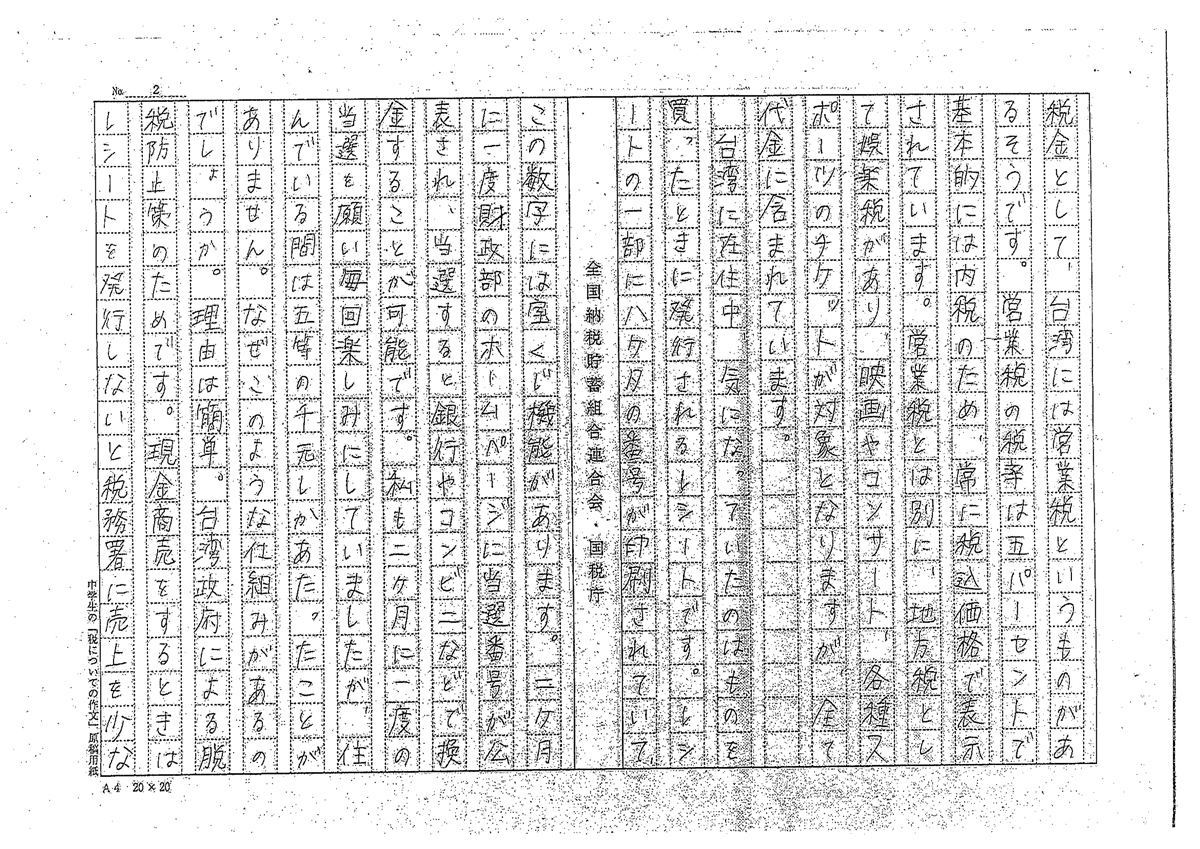 No. 2
税金として、台湾には営業税というものがあ
るそうです。営業税の税率は五パーセントで
基本的には内税のため、常に税込価格で表示
されています。営業税とは別に、地方税とし
て娯楽税があり、映画やコンサート、各種ス
ポーツのチケットが対象となりますが、全て
代金に含まれています。
台湾に在住中、気になっていたのはものを
買ったときに発行されるレシートです。レシ
ートの一部に八ケタの番号が印刷されていて、
全国納税貯蓄組合連合会・国税庁
この数字には宝くじ機能があります。二ケ月
に一度財政部のホームページに当選番号が公
表され、当選すると銀行やコンビニなどで換
金することが可能です。私も二ケ月に一度の
当選を願い毎回楽しみにしていましたが、住
んでいる間は五等の千元しかあたったことが
ありません。なぜこのような仕組みがあるの
でしょうか。理由は簡単。台湾政府による脱
税防止策のためです。現金商売をするときは
レシートを発行しないと税務署に売上を少な
中学生の「税についての作文」原稿用紙
A4 20×20